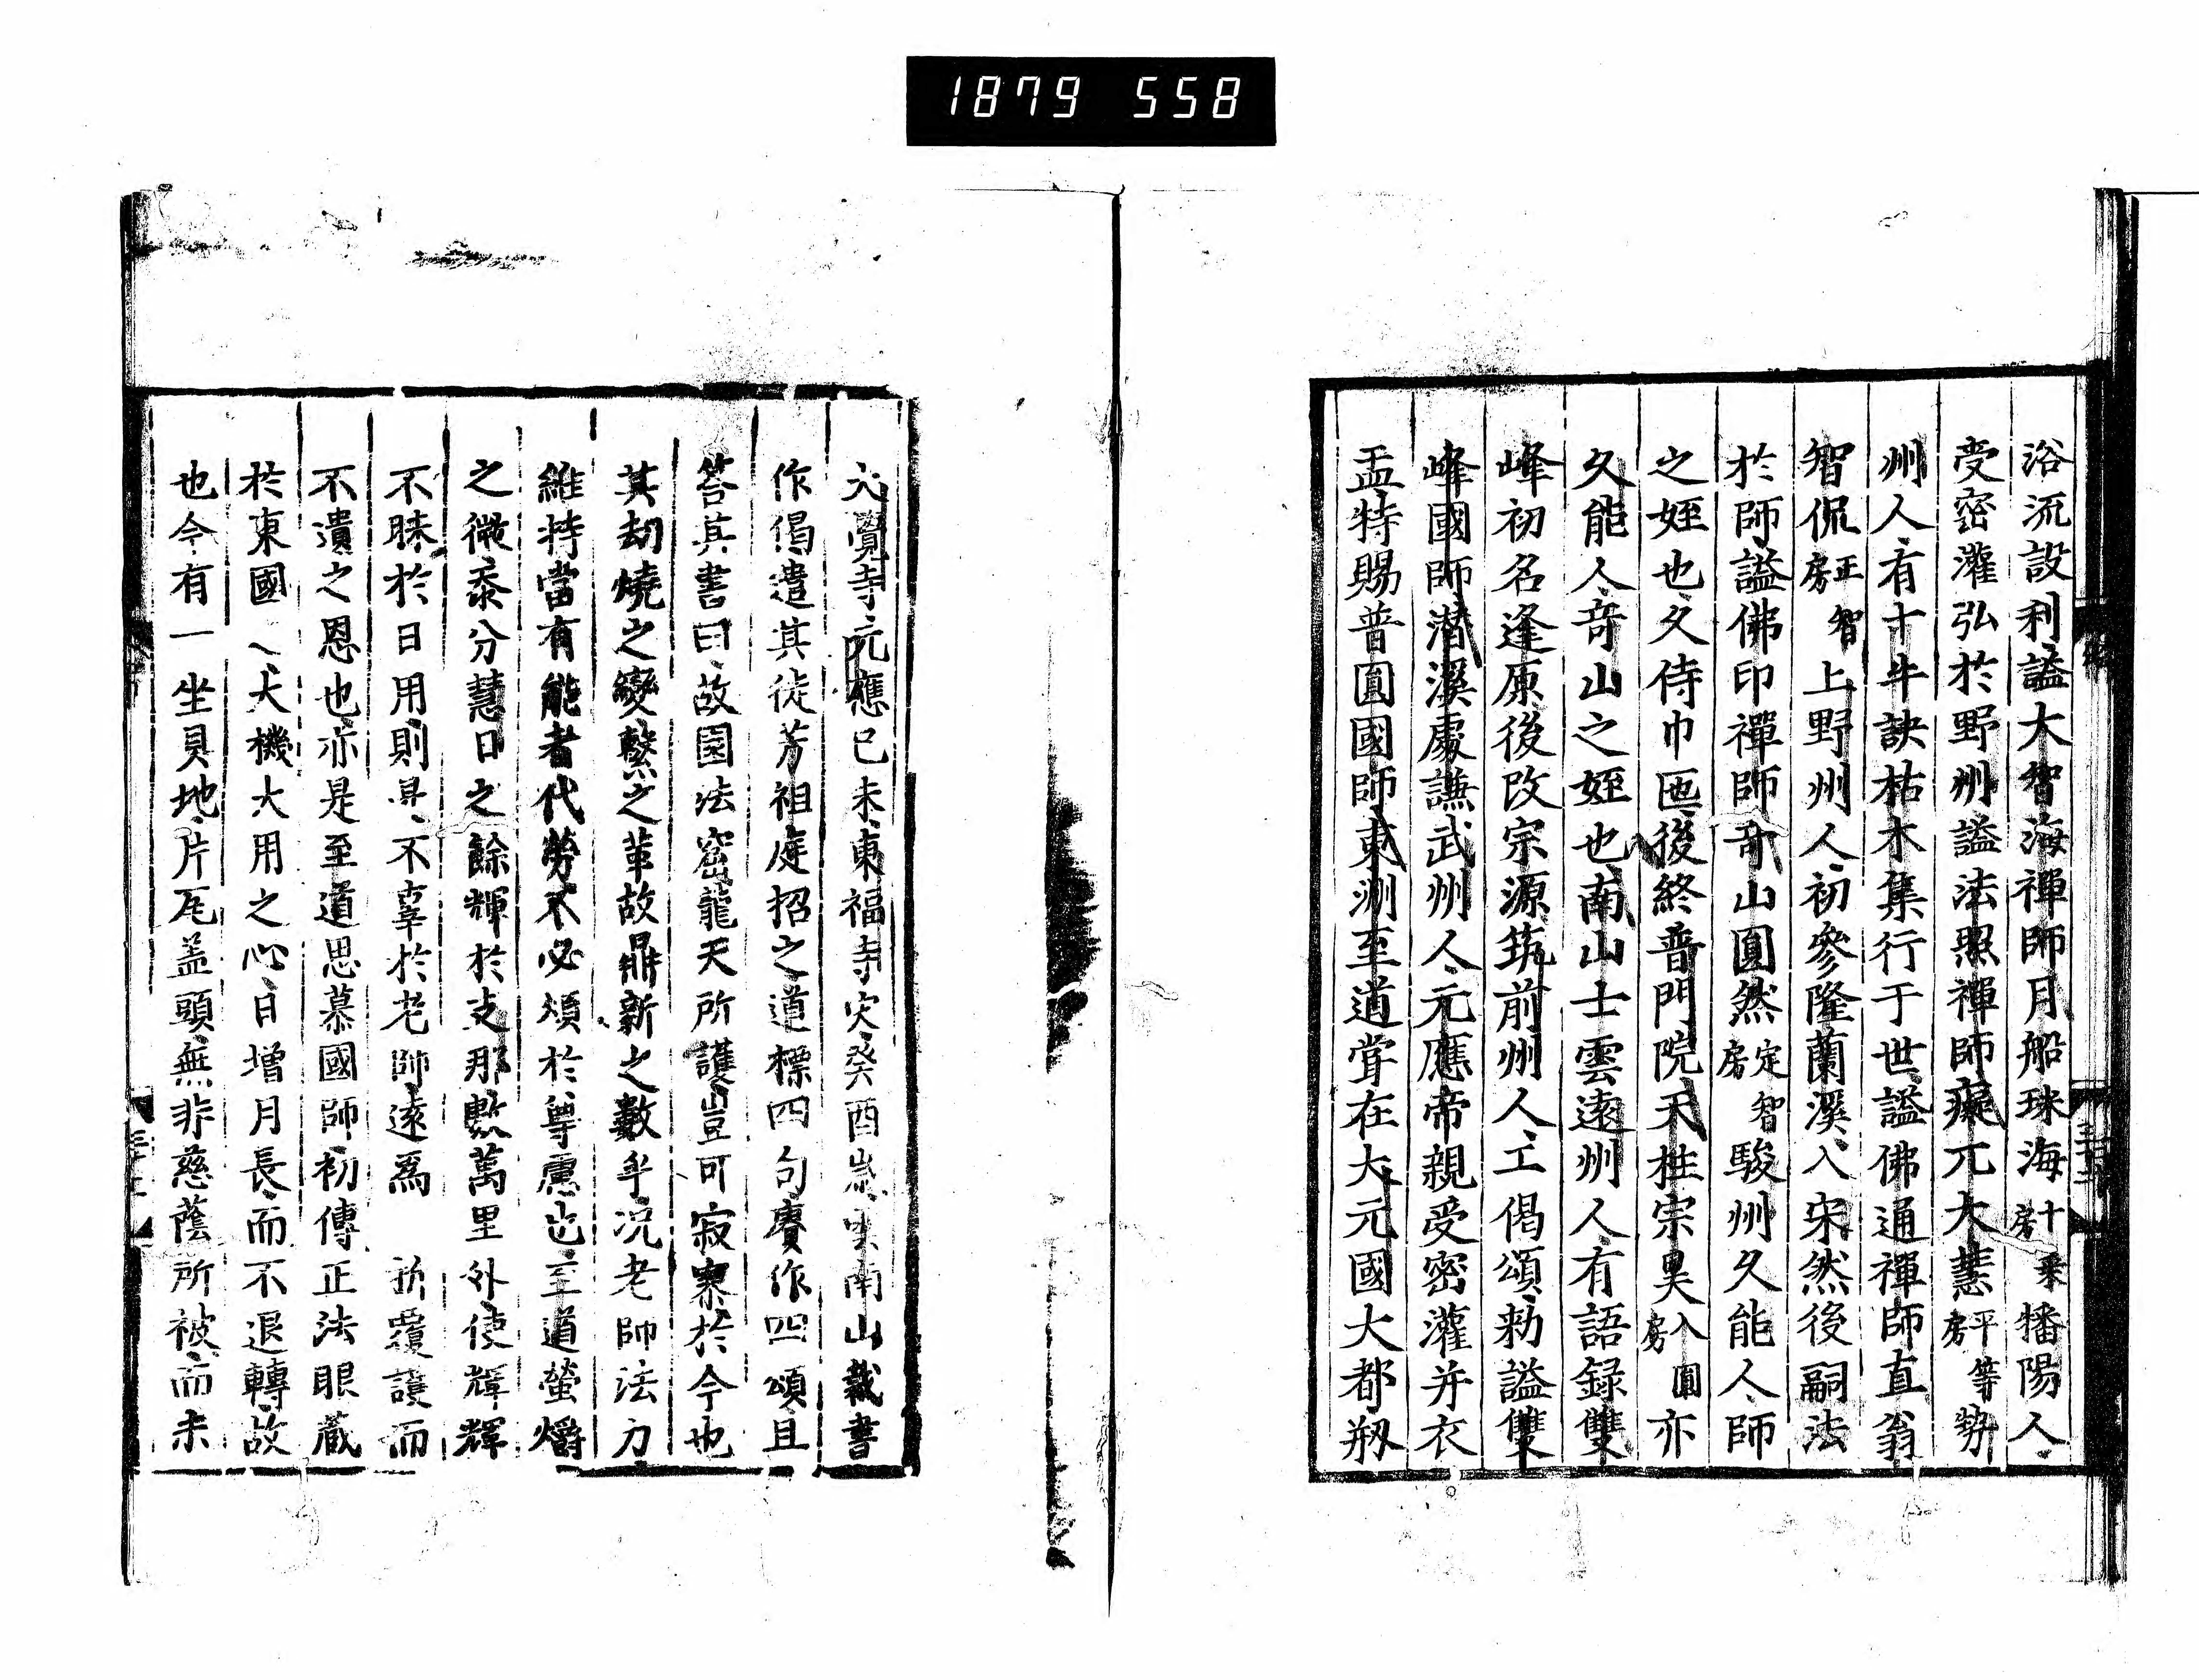 1879 558
浴流設利謚大智海禪師月船琛海十乘房播陽人
受密灌弘於野州謚法照禪師癡兀大慧平等房勢
州人有十牛訣枯木集行于世謚佛通禪師直翁
智侃正智房上野州人初參隆蘭溪入宋然後嗣法
於師謚佛印禪師奇山圓然定智房駿州久能人師
之姪也久侍巾匜後終普門院天柱宗昊入圓房亦
久能人奇山之姪也南山士雲遠州人有語録雙
峰初名逢原後改宗源筑前州人工偈頌勑謚雙
峰國師潜溪處謙武州人元應帝親受密灌并衣
盂特賜普圓國師東洲至道甞在大元國大都剏
大覺寺元應已未東福寺灾癸酉嵗南山裁書
作偈遣其徒芳祖庭招之道標四句賡作四頌且
答其書曰故園法窟龍天所護豈可寂寥於今也
其劫燒之變繫之革故鼎新之數乎况老師法力
維持當有能者代勞不必煩於尊慮也至道螢爝
之微忝分慧日之餘輝於支那數萬里外使輝輝
不昧於日用則 不辜於老師遠爲 覆護而
不遺之恩也亦是至道思慕國師初傳正法眼藏
於東國 大機大用之心日增月長而不退轉故
也今有一坐具地片瓦盖頭無非慈蔭所被而未